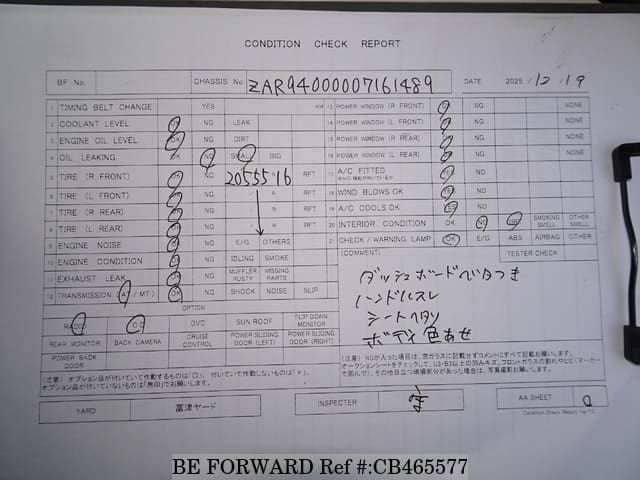 CONDITION CHECK REPORT
BF No. CHASSIS No ZAR94000007161489 DATE 2025 / 12 / 19
1 TIMING BELT CHANGE YES KM 13 POWER WINDOW (R FRONT) OK NG NONE
2 COOLANT LEVEL OK NG LEAK 14 POWER WINDOW (L FRONT) OK NG NONE
3 ENGINE OIL LEVEL OK NG DIRT 15 POWER WINDOW (R REAR) OK NG NONE
4 OIL LEAKING OK NG SMALL BIG 16 POWER WINDOW (L REAR) OK NG NONE
5 TIRE (R FRONT) OK NG 20555-16 RFT 17 A/C FITTED YES NO
6 TIRE (L FRONT) OK NG / R RFT 18 WIND BLOWS OK YES NO
7 TIRE (R REAR) OK NG / R RFT 19 A/C COOLS OK YES NO
8 TIRE (L REAR) OK NG / R RFT 20 INTERIOR CONDITION OK NG SMOKING SMELL OTHER SMELL
9 ENGINE NOISE OK NG E/G OTHERS 21 CHECK/WARNING LAMP OK E/G ABS AIRBAG OTHER
10 ENGINE CONDITION OK NG IDLING SMOKE (COMMENT) TESTER CHECK
11 EXHAUST LEAK OK NG MUFFLER RUSTY MISSING PARTS
12 TRANSMISSION (AT/MT) OK NG SHOCK NOISE SLIP
ダッシュボードベタつき
ハンドルスレ
シートヘタリ
ボディ色あせ
OPTION
RADIO CD DVD SUN ROOF FLIP DOWN MONITOR
REAR MONITOR BACK CAMERA CRUISE CONTROL POWER SLIDING DOOR (LEFT) POWER SLIDING DOOR (RIGHT)
POWER BACK DOOR
(注意) オプション品が付いていて作動するものは「○」、付いていて作動しないものは「×」、
オプション品が付いていないものは「無印」でお願いします。
(注意) NGが入った項目は、空ガラスに記載せずコメントにすべて記載お願いします。
YARD 富津ヤード INSPECTER AA SHEET
Condition Check Report Ver 7.0
BE FORWARD Ref #:CB465577